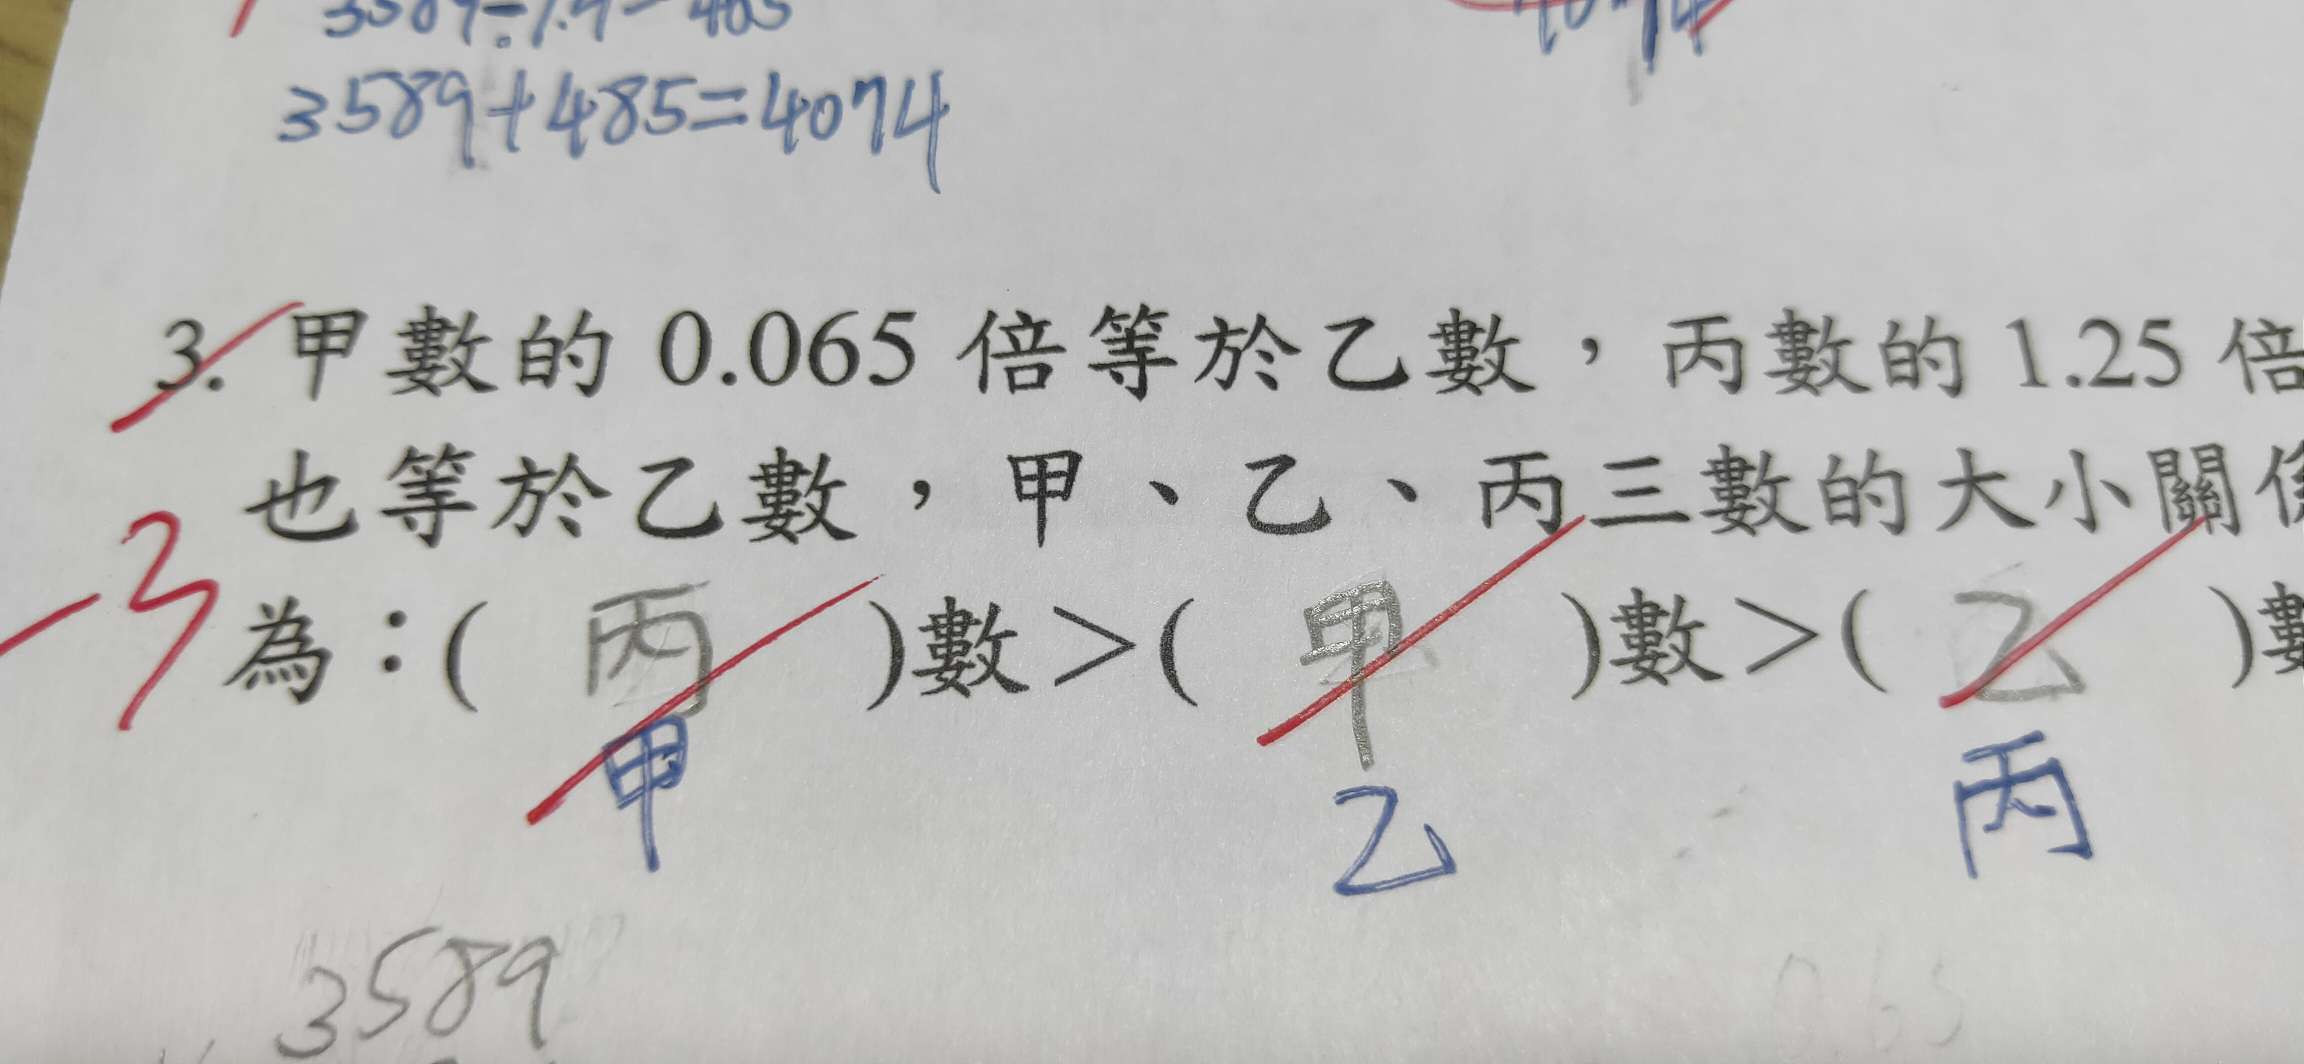 3589÷7.4=485
4074
3589+485=4074
3. 甲數的 0.065 倍等於乙數，丙數的 1.25 倍
也等於乙數，甲、乙、丙三數的大小關係
-3
為：( 丙 )數＞( 甲 )數＞( 乙 )數
甲 乙 丙
3589